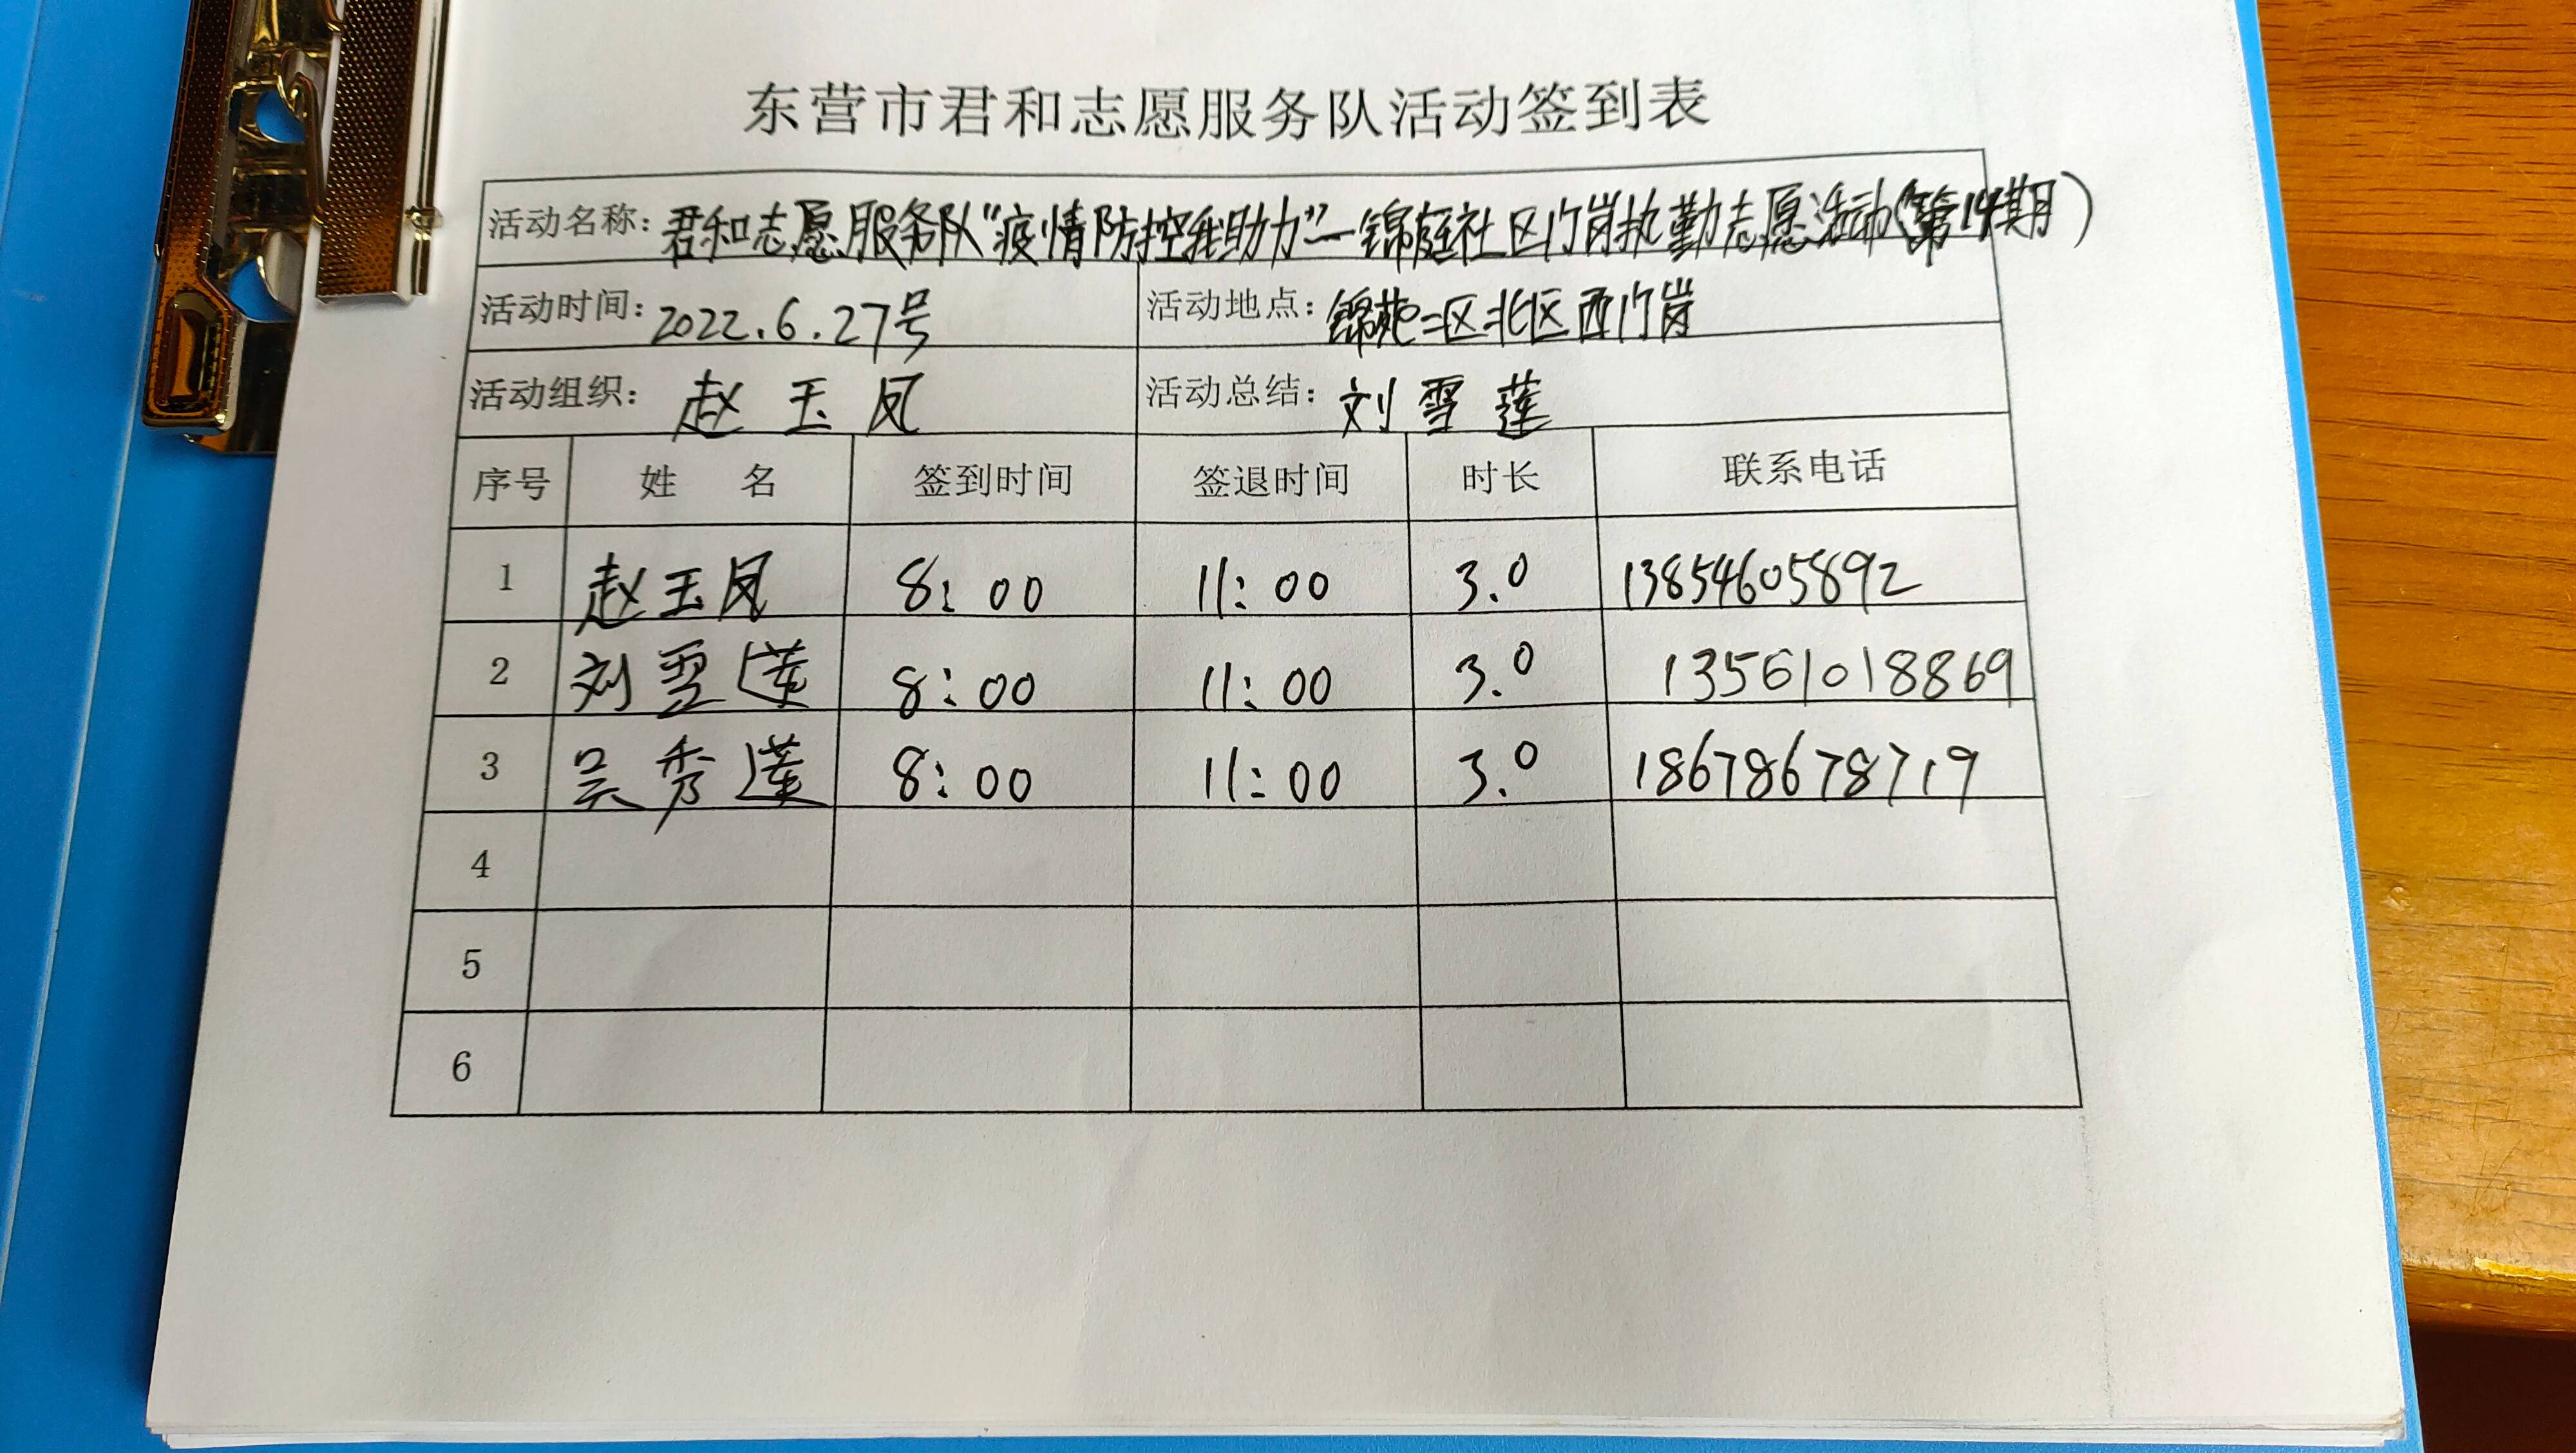 东营市君和志愿服务队活动签到表
活动名称：君和志愿服务队“疫情防控我助力”—锦庭社区门岗执勤志愿活动（第14期）
活动时间：2022.6.27号 活动地点：锦苑二区北区西门岗
活动组织：赵玉凤 活动总结：刘雪莲
序号 姓名 签到时间 签退时间 时长 联系电话
1 赵玉凤 8:00 11:00 3.0 13854605892
2 刘雪莲 8:00 11:00 3.0 13561018869
3 吴秀莲 8:00 11:00 3.0 18678678719
4
5
6